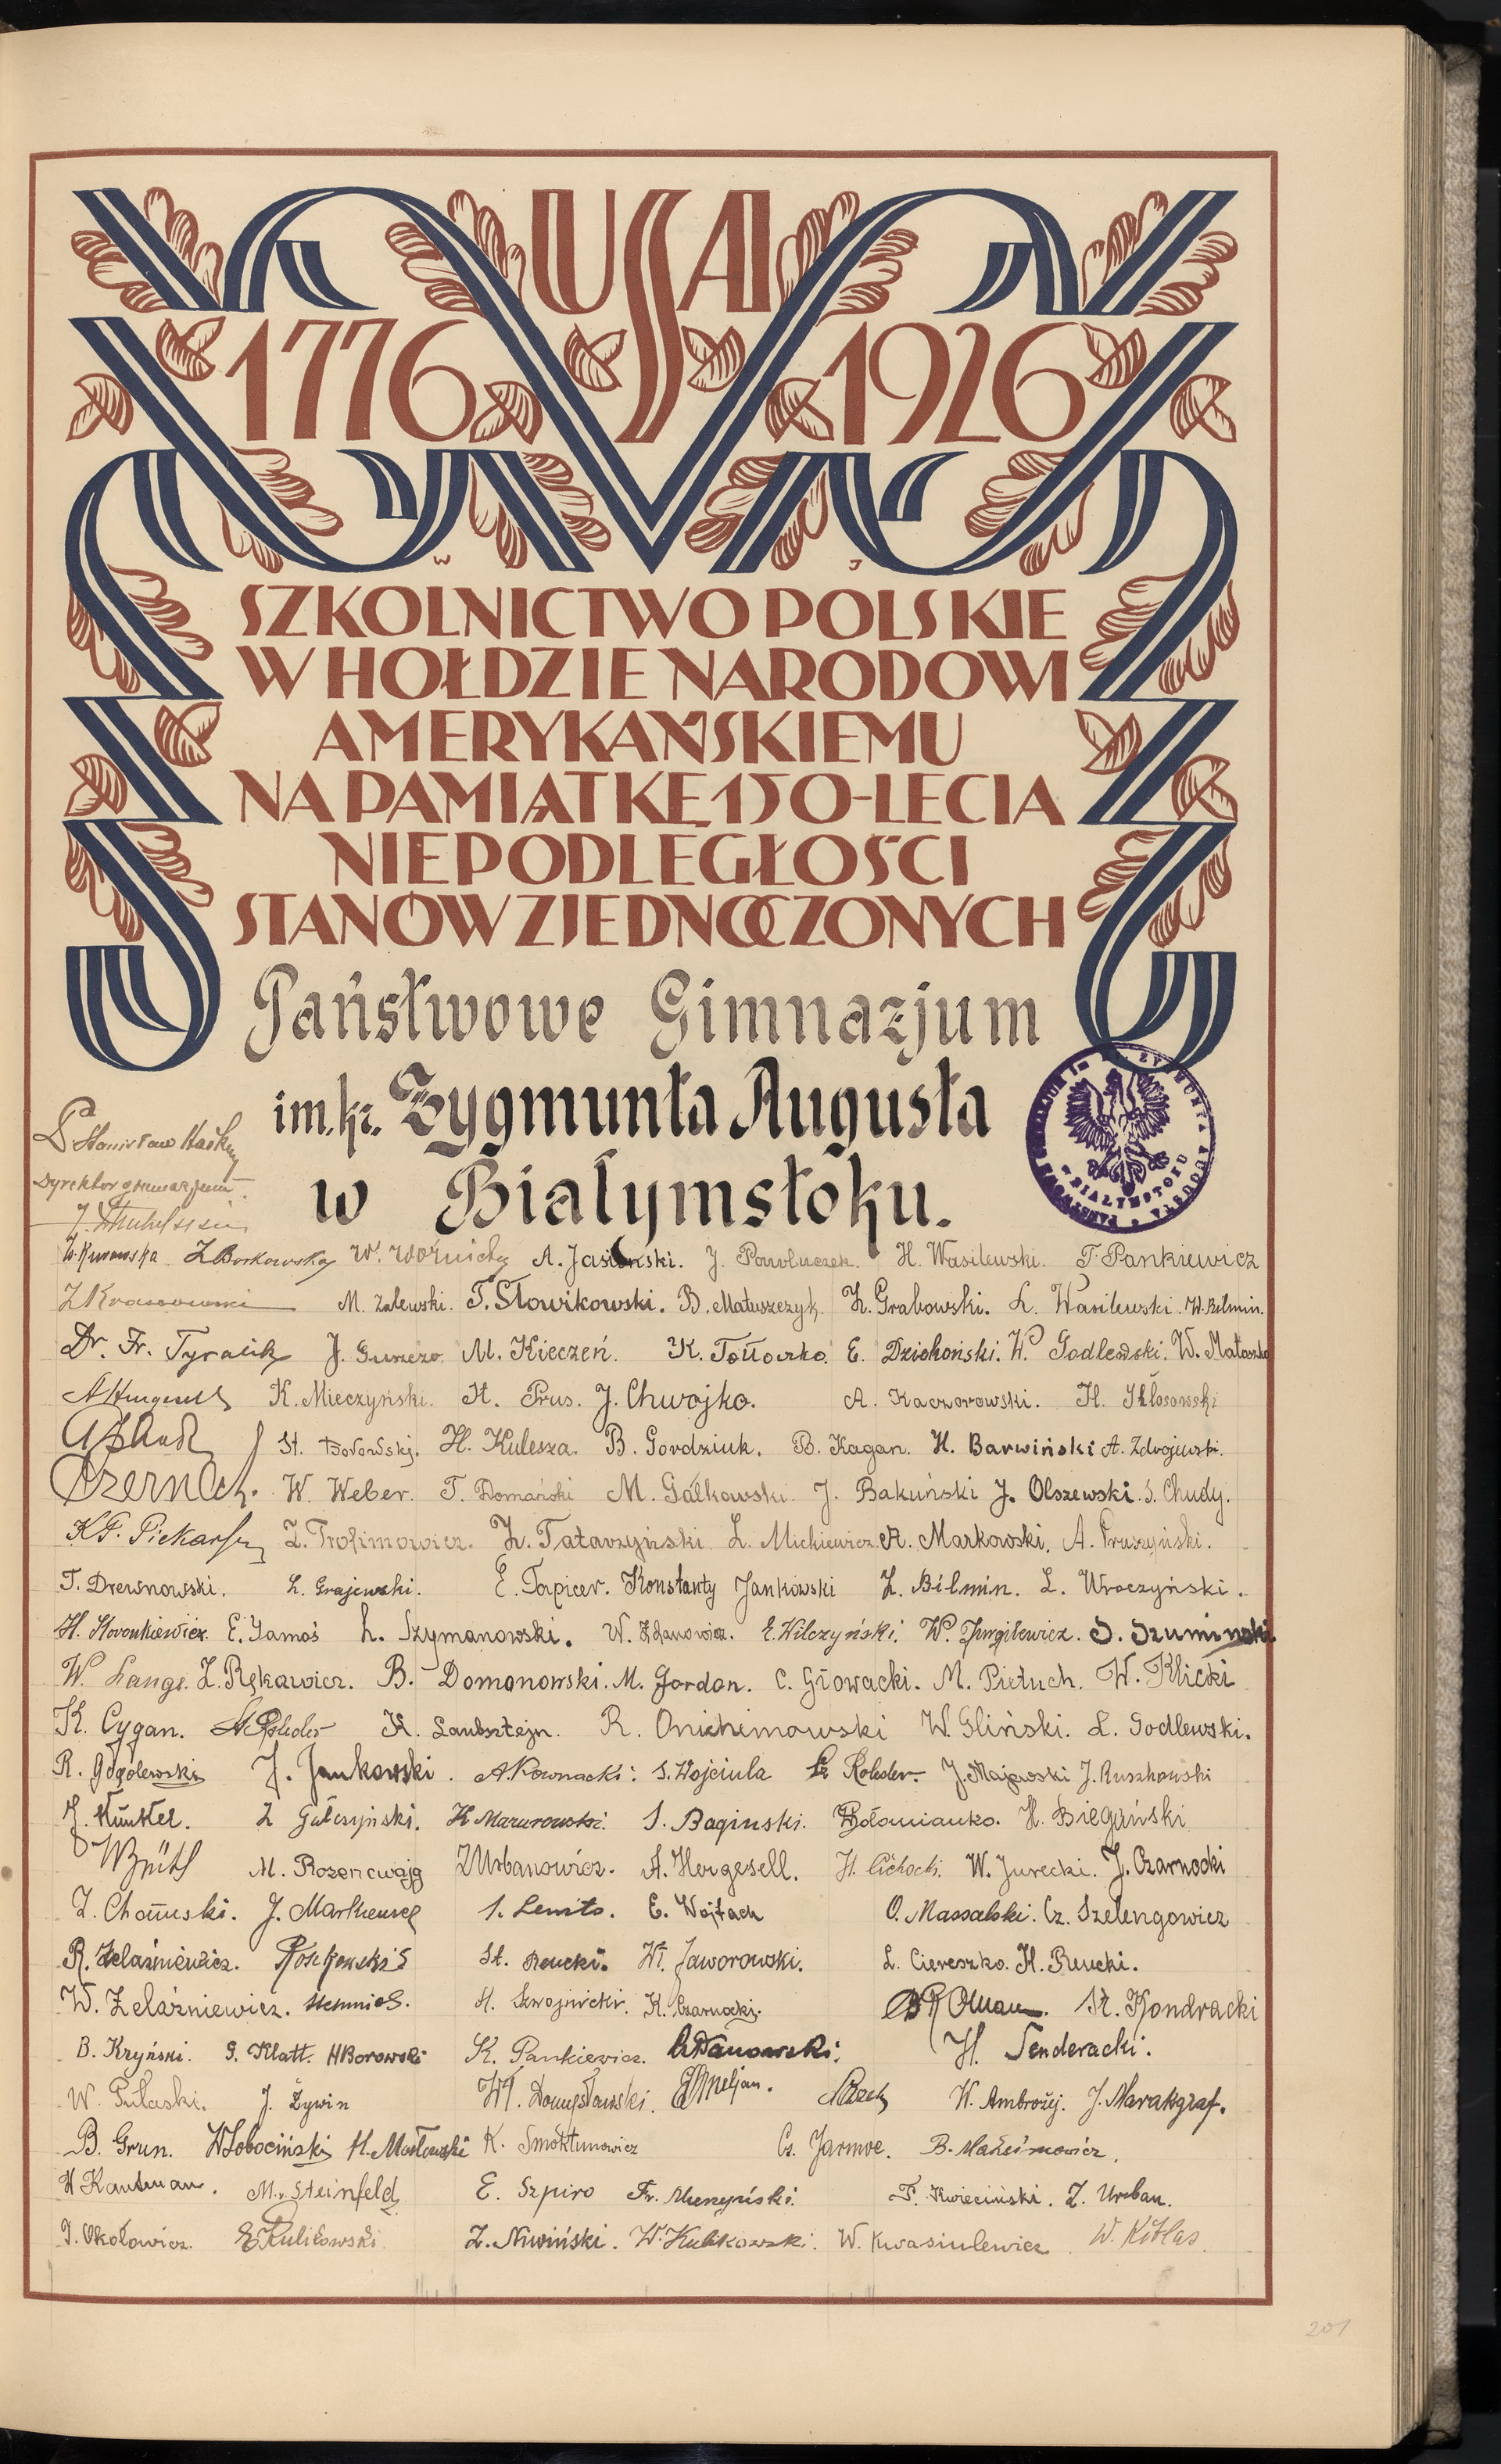 USA
1776 1926
W J
SZKOLNICTWO POLSKIE
W HOŁDZIE NARODOWI
AMERYKAŃSKIEMU
NA PAMIĄTKĘ 150-LECIA
NIEPODLEGŁOŚCI
STANÓW ZJEDNOCZONYCH
Państwowe Gimnazjum
im. kr. Zygmunta Augusta
w Białymstoku.
W BIAŁYMSTOKU
Stanisław
Dyrektor gimnazjum
Z Borkowska W. Woźnicky A. Jasiński. J. Pawluczek. H. Wasilewski. T. Pankiewicz
M. Zalewski. T. Słowikowski. B. Matuszczyk. Z. Grabowski. L. Wasilewski. W. Bilmin.
Dr. Fr. Tyralik M. Kieczeń. K. Tołłoczko. E. Dzichoński. W. Godlewski. W. Matoszko
K. Mieczyński. H. Prus. J. Chwojko. A. Kaczorowski. H. Kłosowski
St. Borowski. H. Kulesza. B. Gordziuk. B. Kagan. H. Barwiński A. Zdrojewski.
W. Weber. T. Domański M. Gałkowski J. Bakuński J. Olszewski. S. Chudy.
Z. Trofimowicz. Z. Tatarzyński. L. Mickiewicz A. Markowski. A. Pruszyński.
T. Drewnowski. L. Grajewski. E. Tapicer. Konstanty Jankowski Z. Bilmin. L. Wroczyński.
E. Jamoś L. Szymanowski. W. Zdanowicz. E. Wilczyński. W. Jurgilewicz. S. Szumiński
W. Lange. Z. Rękawicz. B. Domanowski. M. Gordon. C. Głowacki. M. Pietuch. W. Klicki
K. Cygan. K. Laubsztejn. R. Onichimowski W. Gliński. L. Godlewski.
R. Gogolewski J. Jankowski. A. Kownacki. S. Wojciula J. Majewski J. Ruszkowski
J. Künkel. Z Gułczyński. K Mazurowski. S. Baginski. H. Biegański
M. Rozencwajg Z Urbanowicz. A. Hergesell. H. Cichocki. W. Jurecki. J. Czarnocki
E. Wojtach O. Massalski. Cz. Szelengowicz
R. Żelaźniewicz. St. Reucki. Wł. Jaworowski. L. Ciereszko. H. Reucki.
W. Żelaźniewicz. K. Czarnocki. St. Kondracki
B. Kryński. G. Klatt. H Borowski K. Pankiewicz. H. Senderacki.
W. Pułaski. J. Żywin Wł. Domysławski. W. Ambrożej. J. Marakgraf.
B. Grun. W Łobociński H. Masłowski K. Smoktunowicz Cz. Jarmoc. B. Maksimowicz.
H Kaufman. M. Steinfeld E. Szpiro F. Kwieciński. Z. Urban.
J. Okołowicz. E Kulikowski Z. Niwiński. W. Kulikowski. W. Kwasiulewicz W. Kitlas.
201